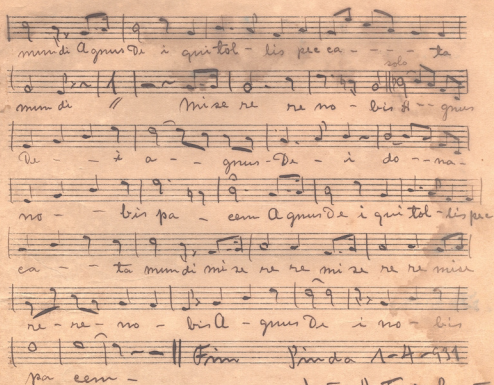 mundi Agnus De i qui tol - lis pec ca - - - - ta
solo
mun di // mise re re no - bis A - - gnus
De - - - i a - - gnus - De - i do - - na -
no - - bis pa - cem Agnus De i qui tol - lis pec
ca - - - ta mundi mise re re mi se re re mise
re - re - no - bis A - gnus De i no - bis
Fim Pinda 1-4-931
pa cem -